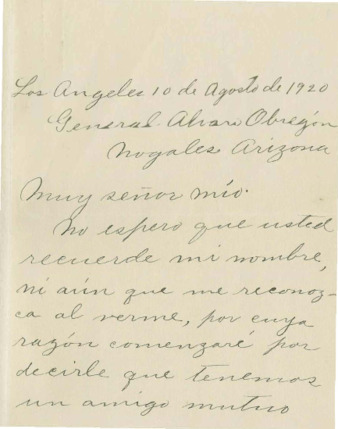 Los Angeles 10 de Agosto de 1920
General Alvaro Obregón
Nogales Arizona
Muy señor mío.
No espero que usted
recuerde mi nombre,
ni aún que me reconoz-
ca al verme, por cuya
razón comenzaré por
decirle que tenemos
un amigo mutuo